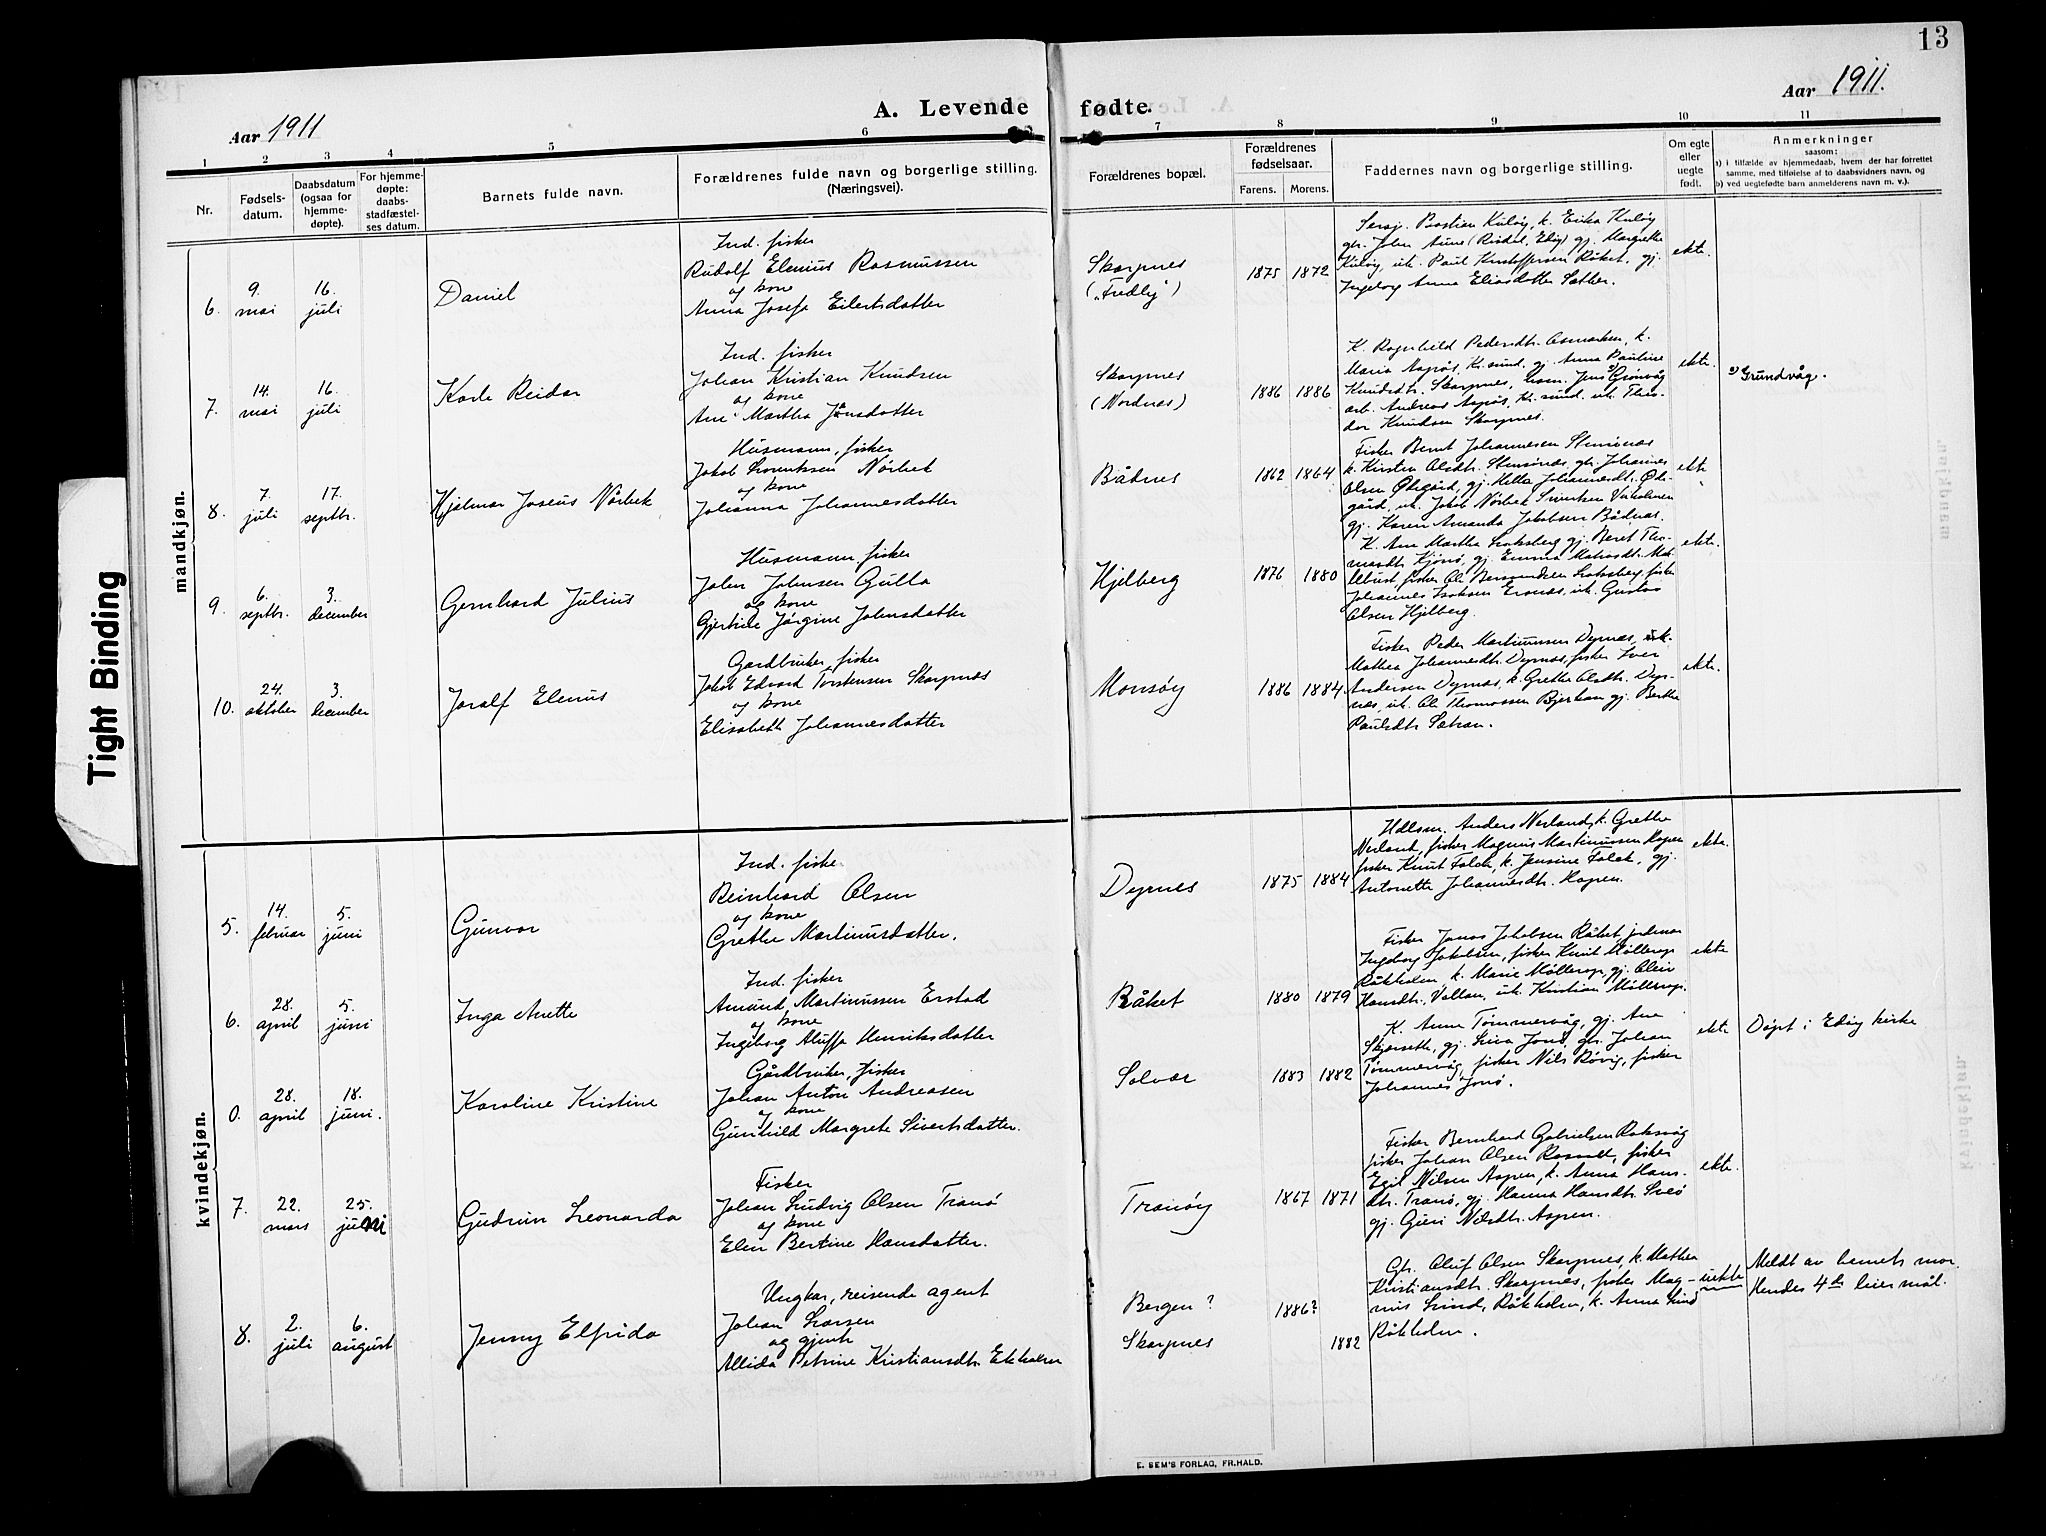 13
Aar 1911
A. Levende fødte.
Aar 1911.
1 2 3 4 5 6 7 8 9 10 11
Nr.
Fødsels-
datum.
Daabsdatum
(ogsaa for
hjemme-
døpte).
For hjemme-
døpte:
daabs-
stadfæstel-
ses datum.
Barnets fulde navn.
Forældrenes fulde navn og borgerlige stilling.
(Næringsvei).
Forældrenes bopæl.
Forældrenes
fødselsaar.
Farens. Morens.
Faddernes navn og borgerlige stilling.
Om egte
eller
uegte
født.
Anmerkninger
saasom:
a) i tilfælde av hjemmedaab, hvem der har forrettet
samme, med tilføielse af to daabsvidners navn, og
b) ved uegtefødte barn anmelderens navn m. v.).
mandkjøn.
6.
9.
mai
16.
juli
Daniel
Ind. fisker
Rudolf Elenius Rasmussen
og kone
Anna Josefa Eilertsdatter
Skarpnes
("Fredly")
1875 1872
Kuløy, k. Erika Kuløy
gbr. John Aune (Risdal, Edøy) gj. Margrethe
Kuløy, uk. Paul Kristoffersen Råket, gj.
Ingeborg Anna Eliasdatter Sæther.
ekte.
7.
14.
mai
16.
juli
Kåre Reidar
Ind. fisker
Johan Kristian Knudsen
og kone
Ane Martha Jonsdatter
Skarpnes
(Nordnes)
1886 1886
K. Ragnhild Pedersdtr. Asmarken, k.
Maria Aspøs, Kr.sund, gj. Anna Pauline
Knudsdtr. Skarpnes, husm. Jens Grønvåg
arb. Andreas Aspøs, Kr.sund. uk. Theo-
dor Knudsen Skarpnes.
ekte.
Grundvåg.
8.
7.
juli
17.
septbr.
Hjalmar Joseus Nørbek
Husmann, fisker
Jakob Lorentsen Nørbek
og kone
Johanna Johannesdatter
Bådnes
1862 1864
Fisker Bernt Johannesen Stensønes
k. Kirsten Olsdtr. Stensønes, gbr. Johannes
Olsen Ødegård, gj. Helle Johannesdtr. Øde-
gård, uk. Jakob Nørbek
gj. Karen Amanda Jakobsen Bådnes.
ekte
9.
6.
septbr.
3.
december
Gernhard Julius
Husmann, fisker
John Johnsen Gulla
og kone
Gjertrude Jørgine Johnsdatter
Hjelberg
1876 1880
K. Ane Martha Loksberg gj. Beret Tho-
masdtr. Kjønø, gj. Emma
fisker Ol. Loksberg, fisker
Johannes Isaksen Ernæs, uk. Gustav
Olsen Hjelberg.
ekte.
10.
24.
oktober
3.
december
Joralf Elenus
Gardbruker, fisker
Jakob Edvard Torstensen Skarpnes
og kone
Elisabeth Johannesdatter
Monsøy
1886 1884
Fisker Peder Martinussen Dyrnes, k.
Mathea Johannesdtr. Dyrnes, fisker Iver
Andersen Dyrnes, k. Grethe Olsdtr. Dyr-
nes, uk. Ol. Thomassen Bjerkan gj. Berthe
Paulsdtr. Sætran.
ekte.
kvindekjøn.
5.
14.
februar
5.
juni
Gunvor
Ind. fisker
Reinhard Olsen
og kone
Grethe Martinusdatter.
Dyrnes
1875 1884
Hdlsm. Anders Nerland, k. Grethe
Nerland, fisker Magnus Martinussen Hopen
fisker Knut Falck, k. Jensine Falck, gj.
Antonette Johannesdtr. Hopen.
ekte.
6.
28.
april
5.
juni
Inga Anette
Ind. fisker
Amund Martinussen Erstad
og kone
Ingeborg Aluffa Henriksdatter
Råket
1880 1879
Fisker Jonas Jakobsen Råket, jordmor
Ingeborg Jakobsen, fisker Knut Møllerop
Råkholm, k. Marie Møllerop, gj. Oline
Hansdtr. Vollan, uk. Kristian Møllerop.
ekte
0.
28.
april
18.
juni.
Karoline Kristine
Gårdbruker, fisker
Johan Anton Andreasen
og kone
Gunhild Margrete Sivertsdatter.
Solvær
1883 1882
K. Anne Tømmervåg, gj. Ane
Skjørseth, gj. Lina Jonø, gbr. Johan
Tømmervåg, fisker Nils Røvig, fisker
Johannes Jonø.
ekte
Døpt i Edøy kirke
7.
22.
mars
25.
juni
Gudrun Leonarda
Fisker
Johan Ludvig Olsen Tranø
og kone
Elen Bertine Hansdatter.
Tranøy
1867 1871
Fisker Bernhard Gabrielsen Roksvåg
fisker Johan Olsen Rosvold, fisker
Egil Nilsen Aspen, k. Anna Hans-
dtr. Tranø, gj. Hanna Hansdtr. Sveø
gj. Guri Nilsdtr. Aspen.
ekte.
8.
2.
juli
6.
august
Jenny Elfrida
Ungkar, reisende agent
Johan Larsen
og gjente
Allida Petrine Kristiansdtr. Ekholm
Bergen?
Skarpnes
1886?
1882
Gbr. Oluf Olsen Skarpnes, k. Mathea
Kristiansdtr. Skarpnes, fisker Mag-
nus Lind, Råkholm, k. Anna Lind
Råkholm.
uekte
Meldt av barnets mor.
Hendes 4de leiermål.
E. SEM'S FORLAG, FR.HALD.
Tight Binding